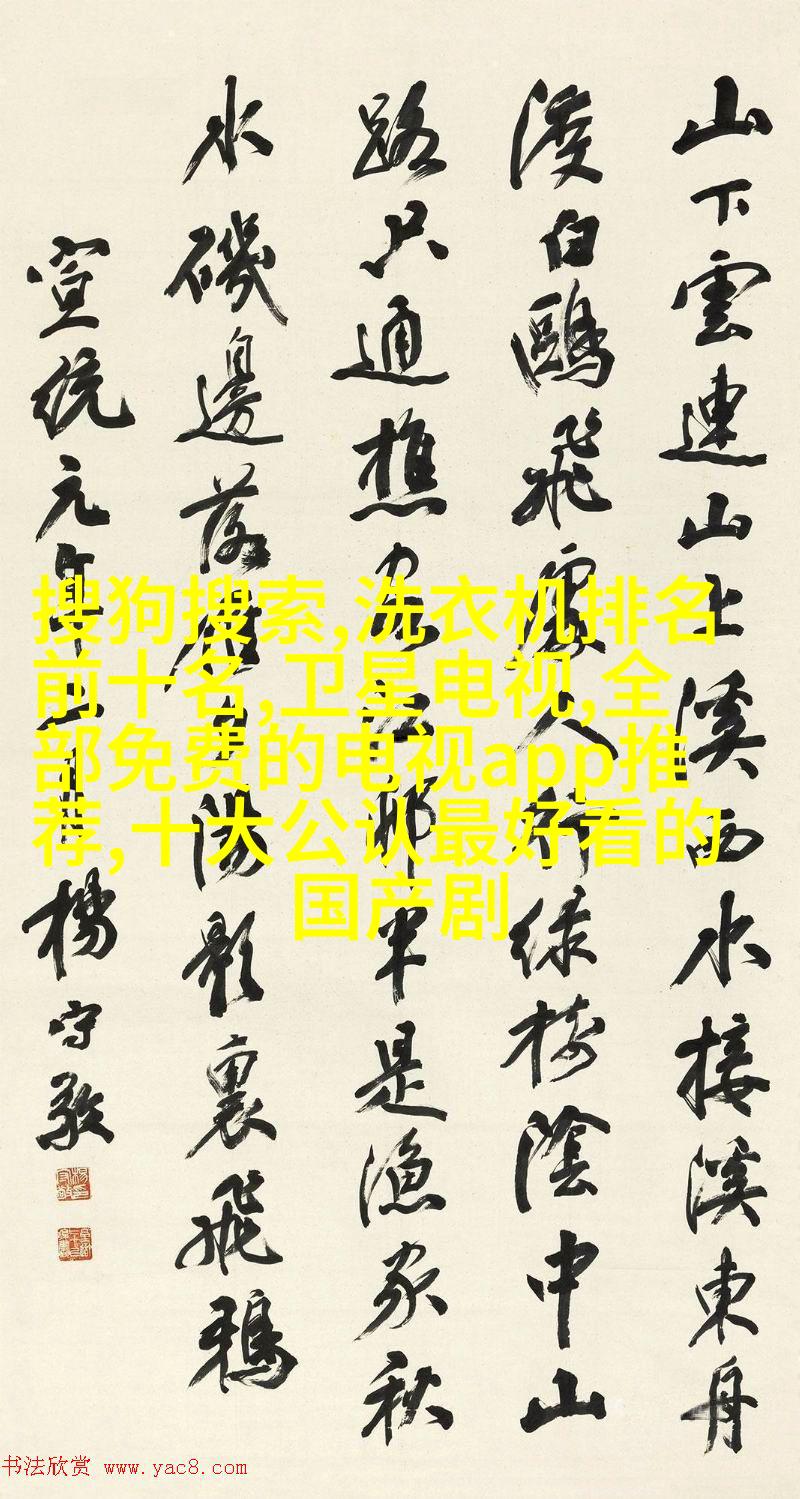 山下雲連山上溪西水接溪東舟
渡白鷗飛處人行綠樹陰中山
路只通樵客江邨半是漁家秋
水磯邊落雁夕陽影裏飛鴉
宣統元年 楊守敬
搜狗搜索,洗衣机排名
前十名,卫星电视,全
部免费的电视app推
荐,十大公认最好看的
国产剧
书法欣赏 www.yac8.com